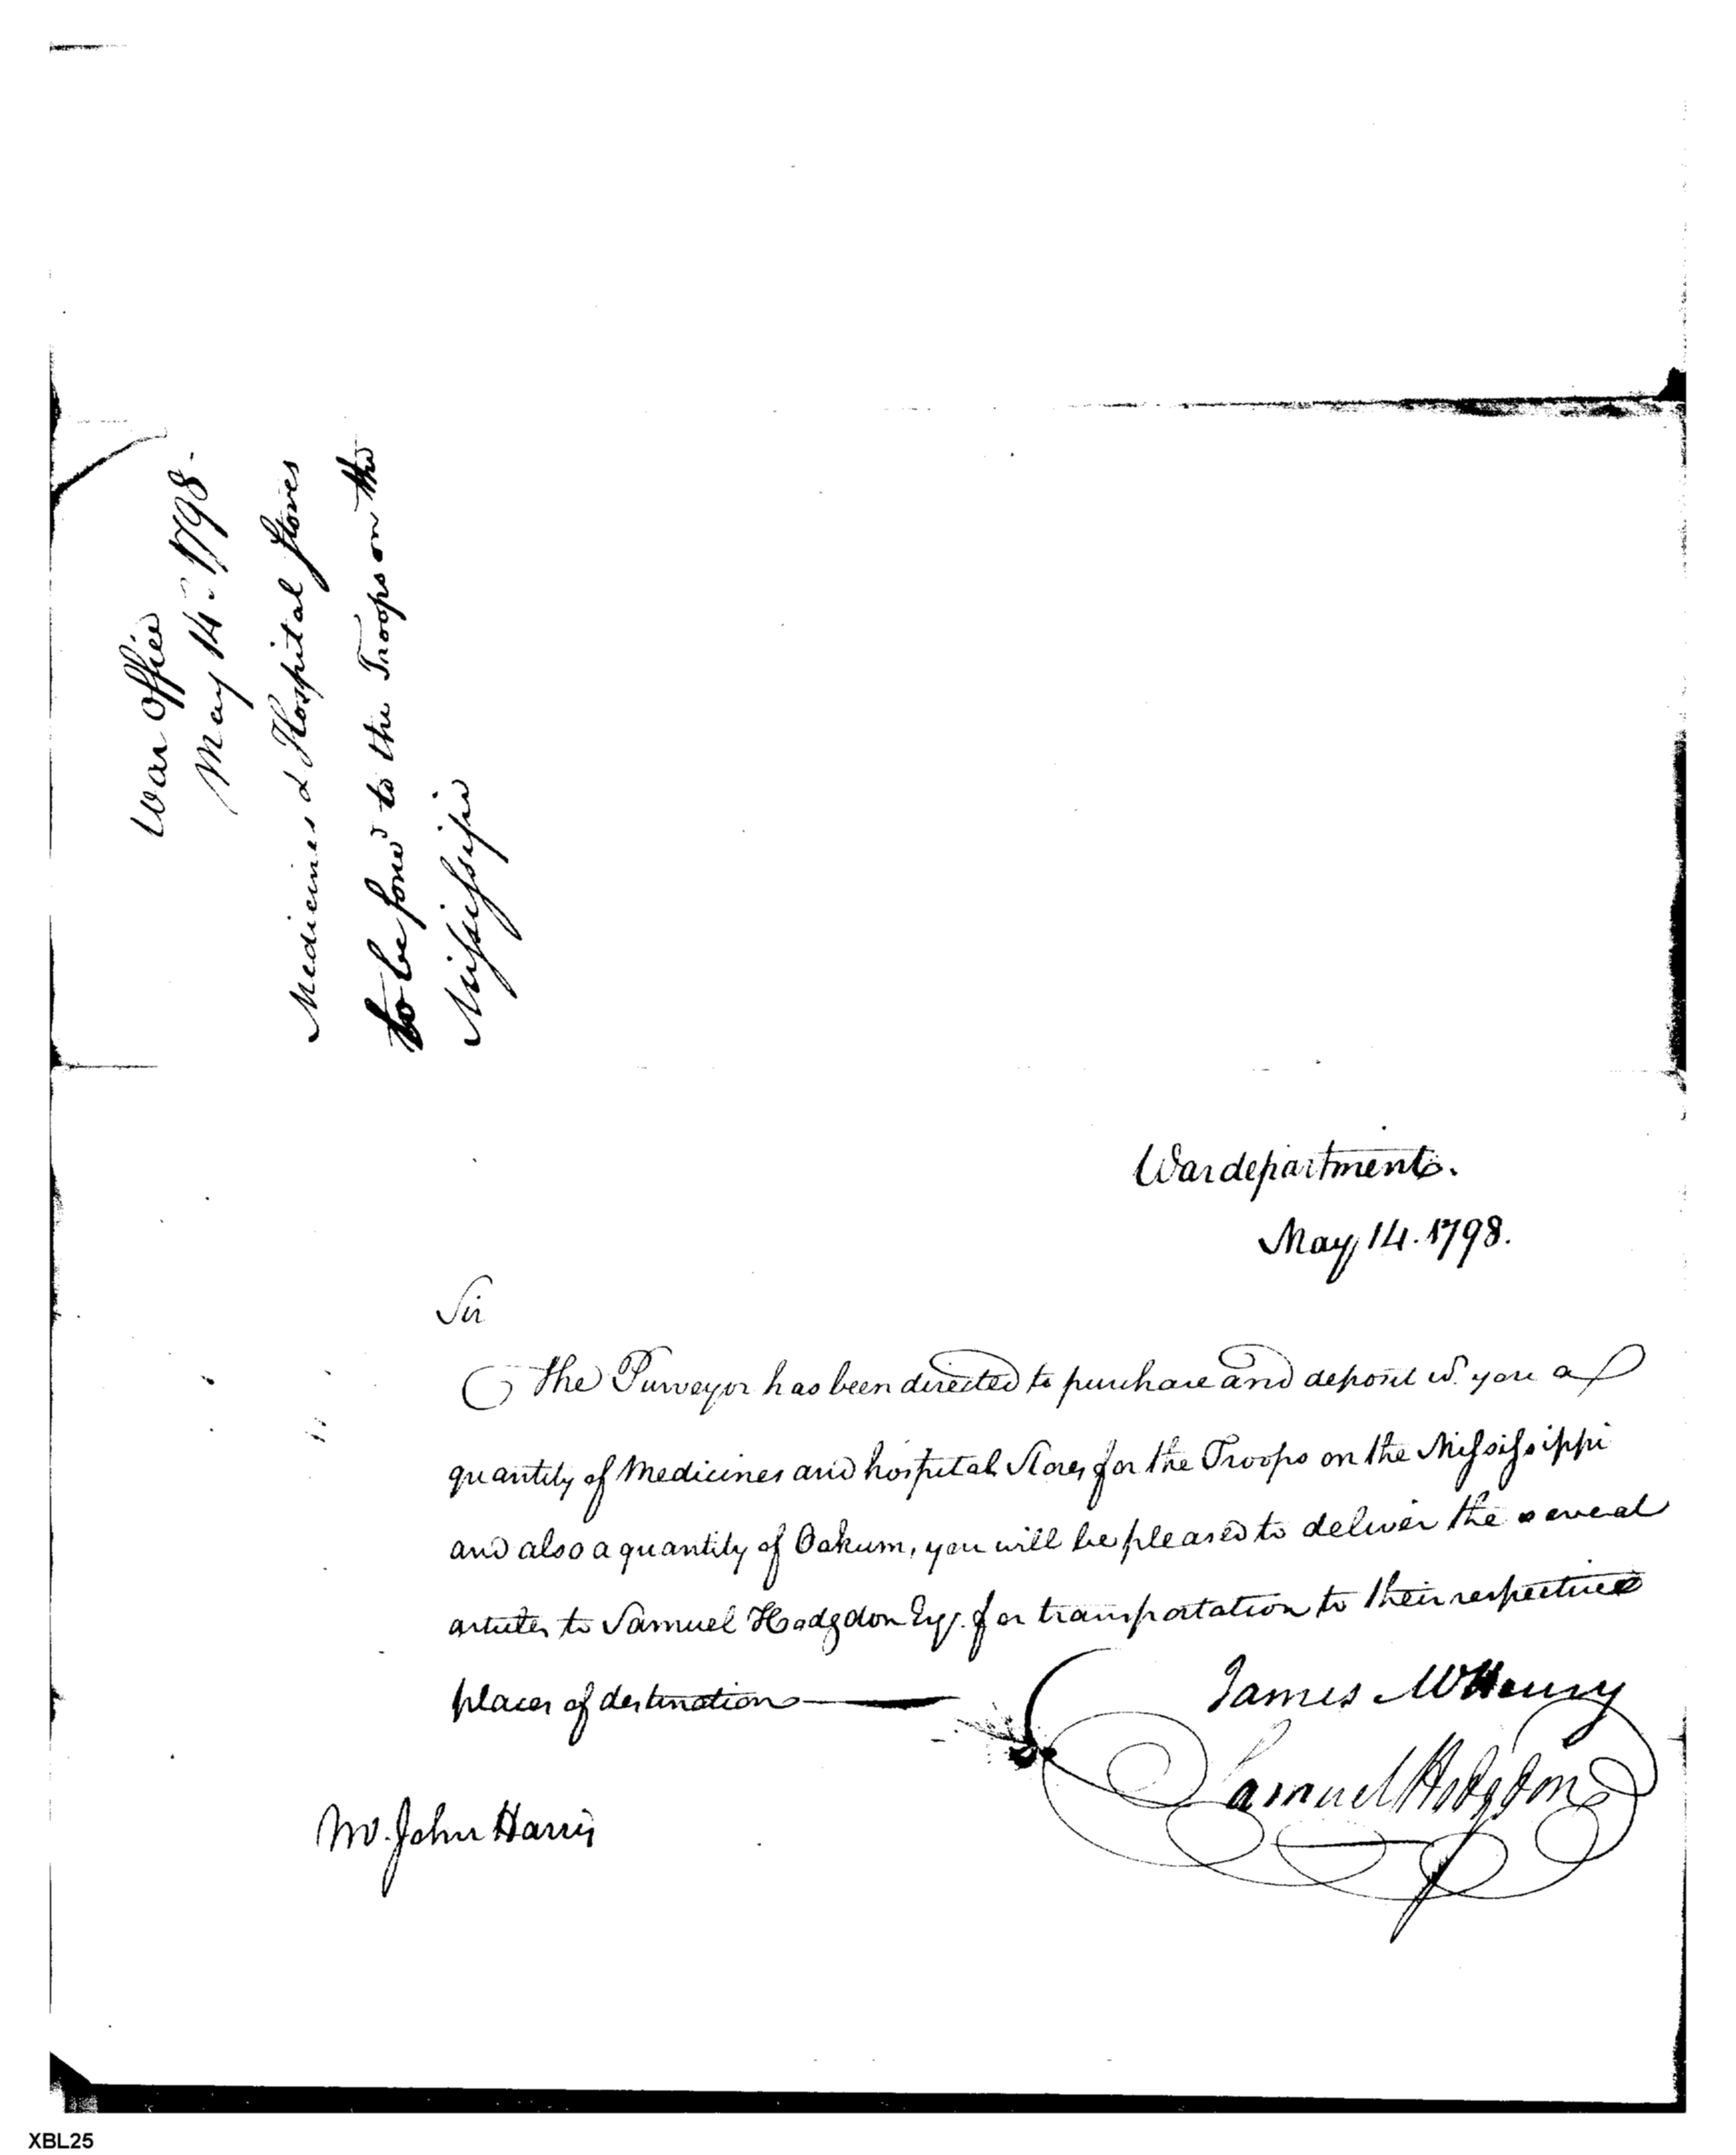 War Office
May 14th 1798.
Medicines & Hospital Stores
to be forwd to the Troops on the
Missisipi
War department.
May 14. 1798.
Sir
The Purveyor has been directed to purchase and deposit wt. you a
quantity of Medicines and hospital Stores for the Troops on the Mississippi
and also a quantity of Oakum, you will be pleased to deliver the several
articles to Samuel Hodgdon Esqr. for transportation to their respective
places of destination
James McHenry
Samuel Hodgdon
Mr. John Harris
XBL25